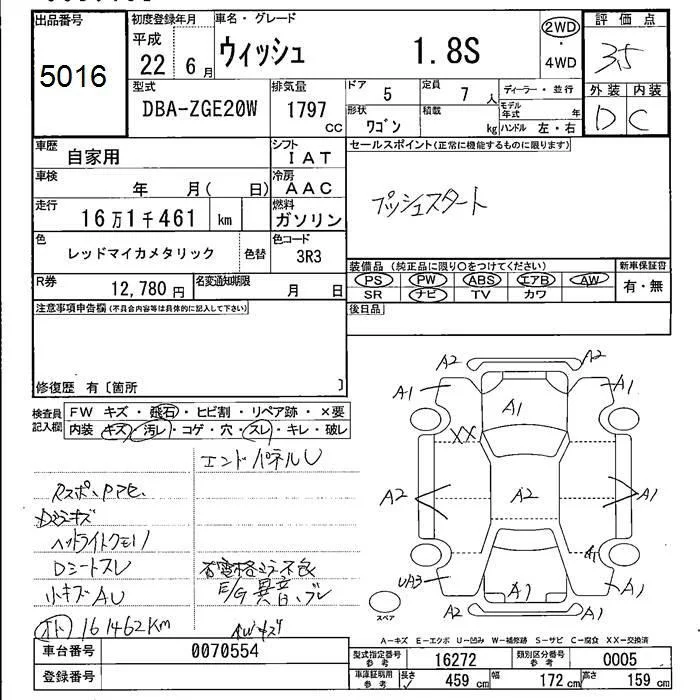 出品番号
5016
初度登録年月
平成
22 6月
車名・グレード
ウィッシュ 1.8S
2WD
・
4WD
評価点
3.5
外装 内装
D C
型式
DBA-ZGE20W
排気量
1797
cc
ドア
5
定員
7 人
ディーラー・並行
モデル
年式 年
形状
ワゴン
積載
kg
ハンドル 左・右
車歴
自家用
シフト
IAT
車検
年 月( 日)
冷房
AAC
走行
16万1千461 km
燃料
ガソリン
色
レッドマイカメタリック
色替
色コード
3R3
R券
12,780円
名変通知期限
月 日
セールスポイント(正常に機能するものに限ります)
プッシュスタート
装備品(純正品に限り○をつけてください)
PS PW ABS エアB AW
SR ナビ TV カワ
新車保証書
有・無
後日品
注意事項申告欄(不具合内容等は具体的に記入して下さい)
修復歴 有〔箇所 〕
検査員
記入欄
FW キズ・飛石・ヒビ割・リペア跡・×要
内装 キズ・汚レ・コゲ・穴・スレ・キレ・破レ
エンドパネルU
ヘッドライトクモリ
Dシートスレ
小キズAU
E/G異音、ブレ
161462KM
AWキズ
A2 A2
A1 A1 A1
XX
A2 A2 A1
A1
UA3 A1 A1
A2 A1
スペア
A-キズ E-エクボ U-凹み W-補修跡 S-サビ C-腐食 XX-交換済
車台番号
0070554
登録番号
型式指定番号
参考
16272
類別区分番号
参考
0005
車庫証明用
参考
長さ
459 cm
幅
172 cm
高さ
159 cm